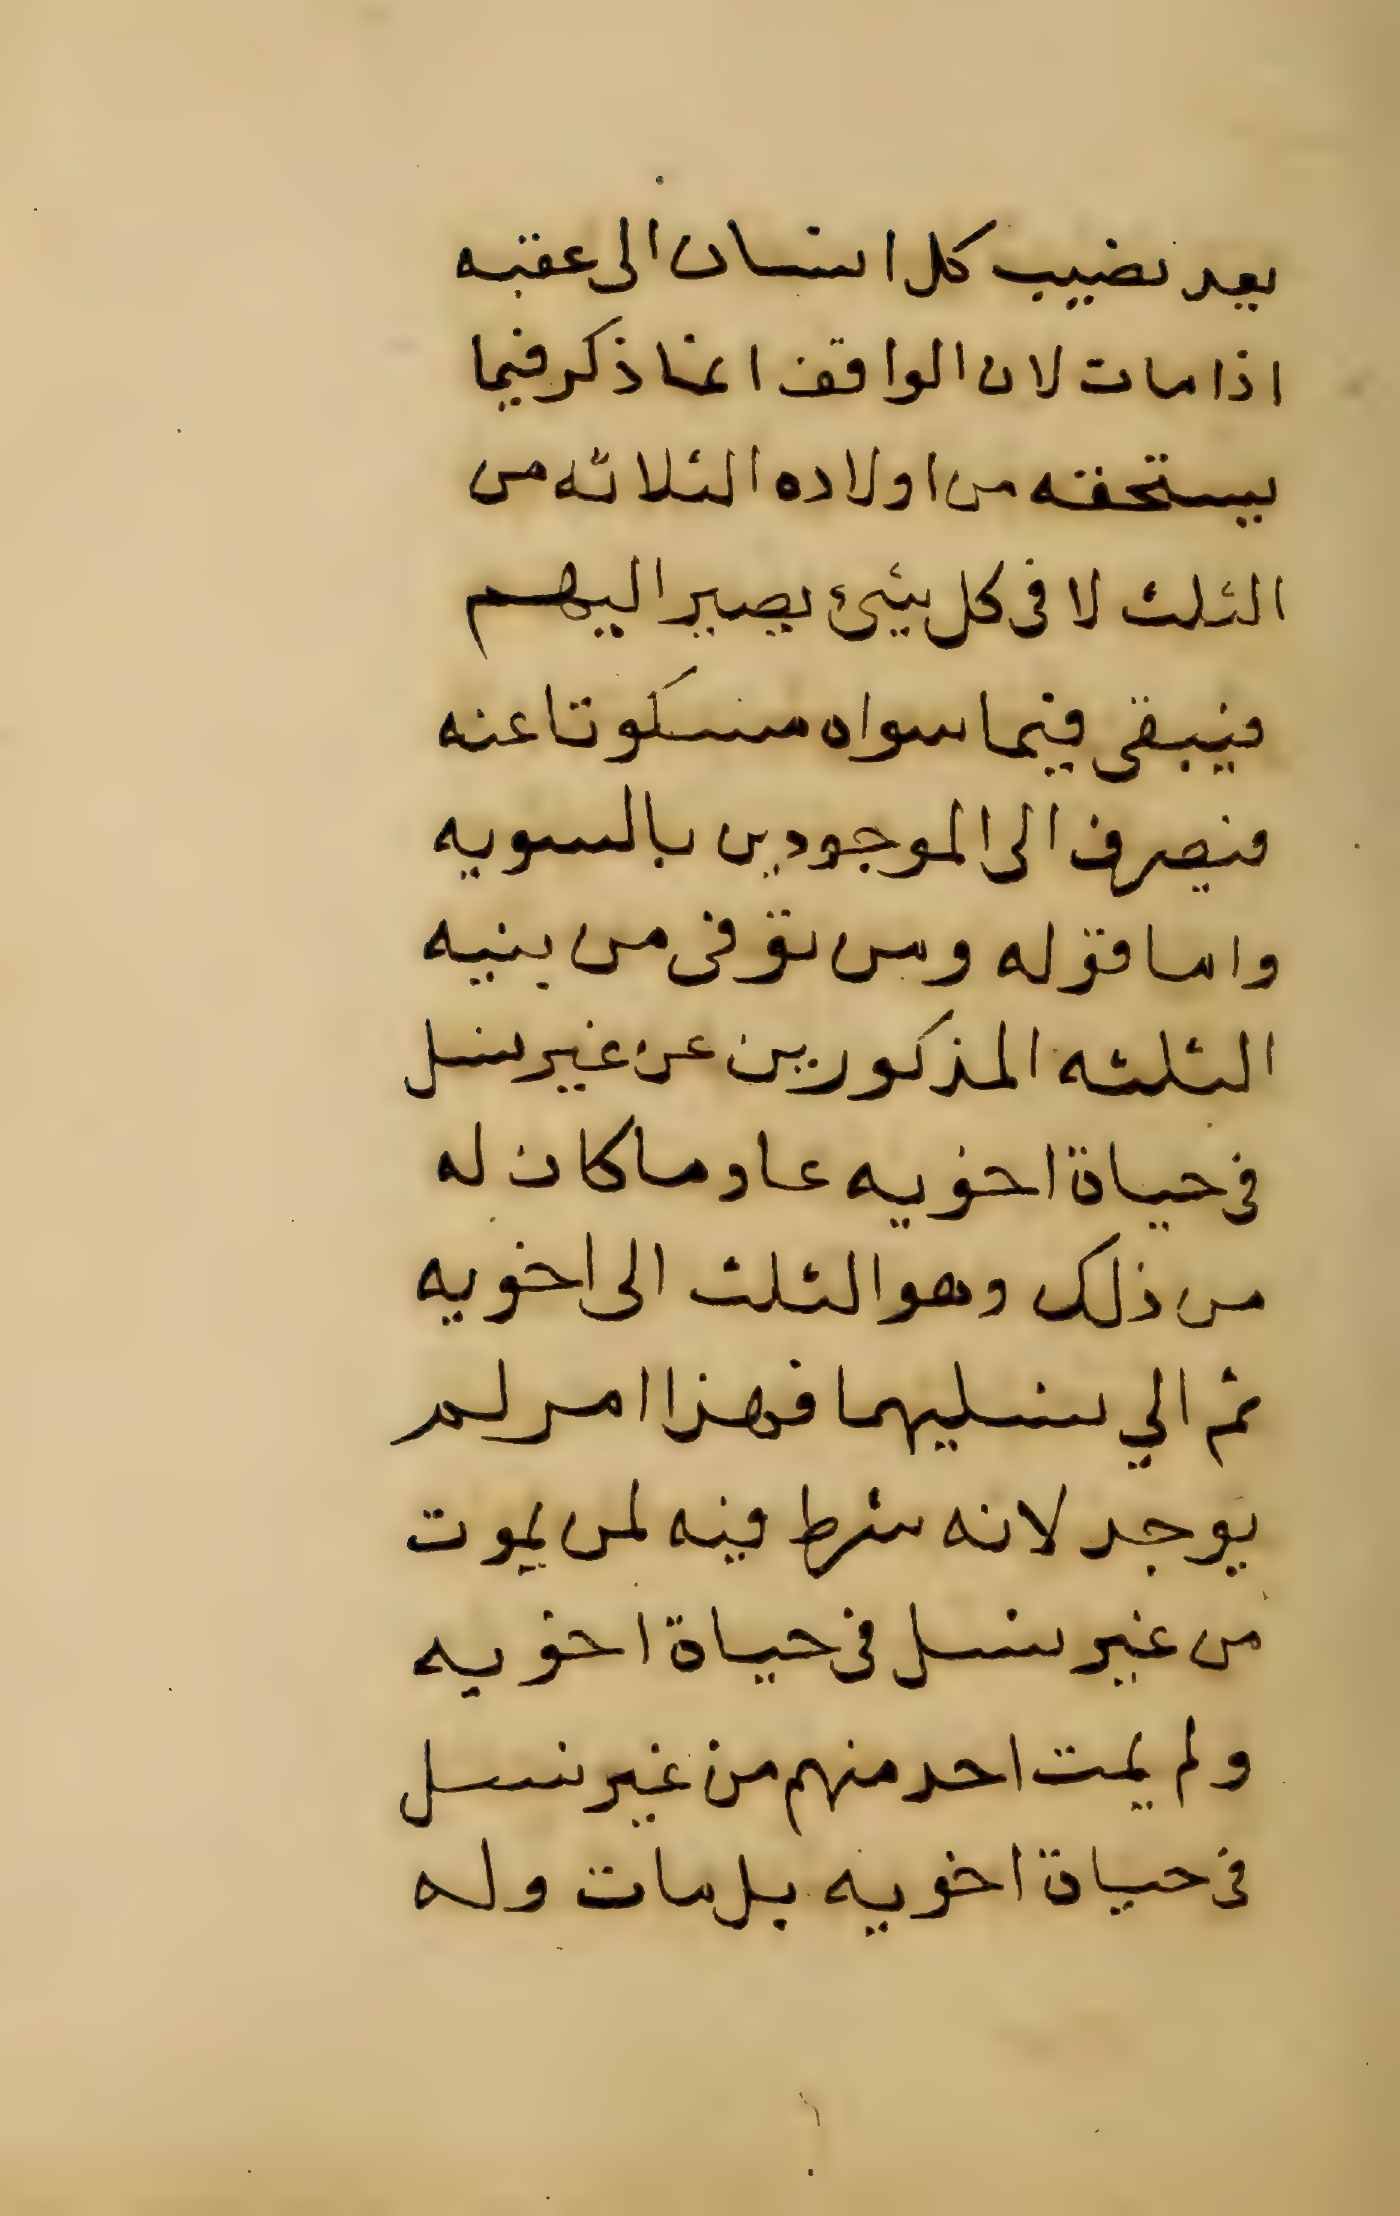 يعد نصيب كل انسان الى عقبه
اذا مات لان الواقف انما ذكر فيما
يستحقه من اولاده الثلاثه من
الثلث لا فى كل شىء يصير اليهم
فيبقى فيما سواه مسكوتا عنه
فيصرف الى الموجودين بالسويه
واما قوله ومن توفى من بنيه
الثلثه المذكورين عن غير نسل
فى حياة اخويه عاد ما كان له
من ذلك وهو الثلث الى اخويه
ثم الي نسليهما فهذا امر لم
يوجد لانه شرط فيه لمن يموت
من غير نسل فى حياة اخويه
ولم يمت احد منهم من غير نسل
فى حياة اخويه بل مات وله